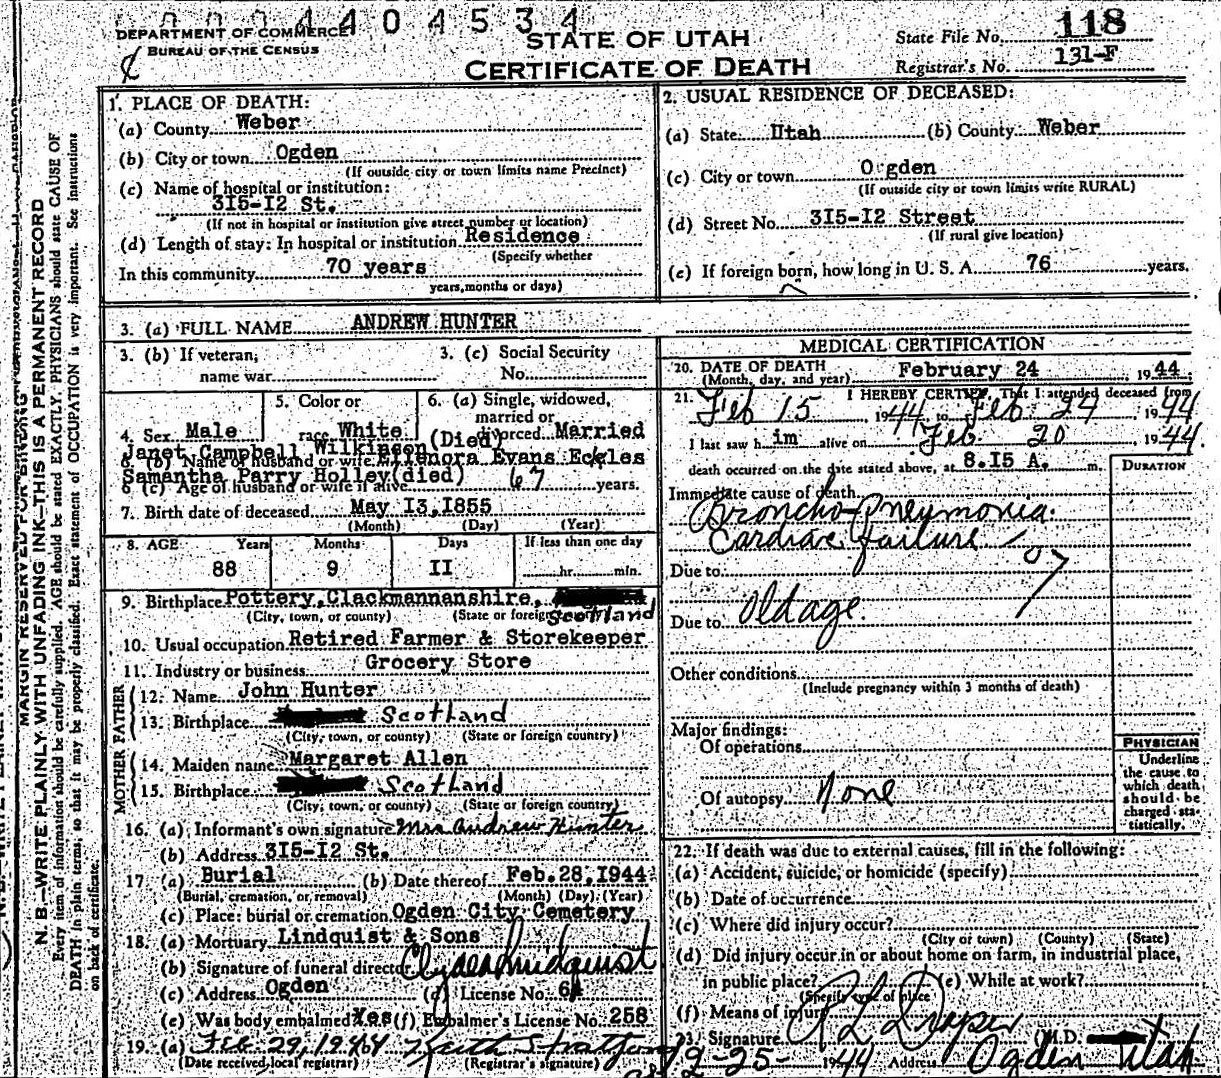 0004404534
DEPARTMENT OF COMMERCE
BUREAU OF THE CENSUS
STATE OF UTAH
CERTIFICATE OF DEATH
State File No. 118
Registrar's No. 131-F
MARGIN RESERVED FOR BINDING
N. B.—WRITE PLAINLY WITH UNFADING INK—THIS IS A PERMANENT RECORD
Every item of information should be carefully supplied. AGE should be stated EXACTLY. PHYSICIANS should state CAUSE OF
DEATH in plain terms, so that it may be properly classified. Exact statement of OCCUPATION is very important. See instructions
on back of certificate.
1. PLACE OF DEATH:
(a) County Weber
(b) City or town Ogden
(If outside city or town limits name Precinct)
(c) Name of hospital or institution:
3I5-I2 St.
(If not in hospital or institution give street number or location)
(d) Length of stay: In hospital or institution Residence
(Specify whether
In this community 70 years
years, months or days)
2. USUAL RESIDENCE OF DECEASED:
(a) State Utah (b) County Weber
(c) City or town Ogden
(If outside city or town limits write RURAL)
(d) Street No. 3I5-I2 Street
(If rural give location)
(e) If foreign born, how long in U. S. A. 76 years.
3. (a) FULL NAME ANDREW HUNTER
3. (b) If veteran, name war
3. (c) Social Security No.
4. Sex Male
5. Color or race White
6. (a) Single, widowed, married or divorced Married
Janet Campbell Wilkinson (Died)
6. (b) Name of husband or wife Ellenora Evans Eckles
Samantha Parry Holley (died)
6 (c) Age of husband or wife if alive 67 years.
7. Birth date of deceased May I3, I855
(Month) (Day) (Year)
8. AGE Years Months Days If less than one day
88 9 II hr. min.
9. Birthplace Pottery, Clackmannanshire, Scotland
(City, town, or county) (State or foreign country)
10. Usual occupation Retired Farmer & Storekeeper
11. Industry or business Grocery Store
FATHER
12. Name John Hunter
13. Birthplace Scotland
(City, town, or county) (State or foreign country)
MOTHER
14. Maiden name Margaret Allen
15. Birthplace Scotland
(City, town, or county) (State or foreign country)
16. (a) Informant's own signature Mrs Andrew Hunter
(b) Address 3I5-I2 St.
17 (a) Burial (b) Date thereof Feb. 28, I944
(Burial, cremation, or removal) (Month) (Day) (Year)
(c) Place: burial or cremation Ogden City Cemetery
18. (a) Mortuary Lindquist & Sons
(b) Signature of funeral director Clyde Lindquist
(c) Address Ogden (d) License No. 64
(e) Was body embalmed Yes (f) Embalmer's License No. 258
19. (a) Feb 29, 1944
(Date received local registrar) (Registrar's signature)
MEDICAL CERTIFICATION
20. DATE OF DEATH
(Month, day, and year) February 24 1944
21. I HEREBY CERTIFY, That I attended deceased from
Feb 15 1944 to Feb 24 1944
I last saw him alive on Feb. 20 1944.
death occurred on the date stated above, at 8.I5 A. m.
DURATION
Immediate cause of death
Broncho-Pneumonia.
Cardiac failure
107
Due to
Due to Old age.
Other conditions
(Include pregnancy within 3 months of death)
Major findings:
Of operations
Of autopsy None
PHYSICIAN
Underline
the cause to
which death
should be
charged sta-
tistically.
22. If death was due to external causes, fill in the following:
(a) Accident, suicide, or homicide (specify)
(b) Date of occurrence
(c) Where did injury occur?
(City or town) (County) (State)
(d) Did injury occur in or about home on farm, in industrial place,
in public place? (e) While at work?
(Specify type of place)
(f) Means of injury
23. Signature R L Draper M.D.
2-25- 1944 Address Ogden Utah